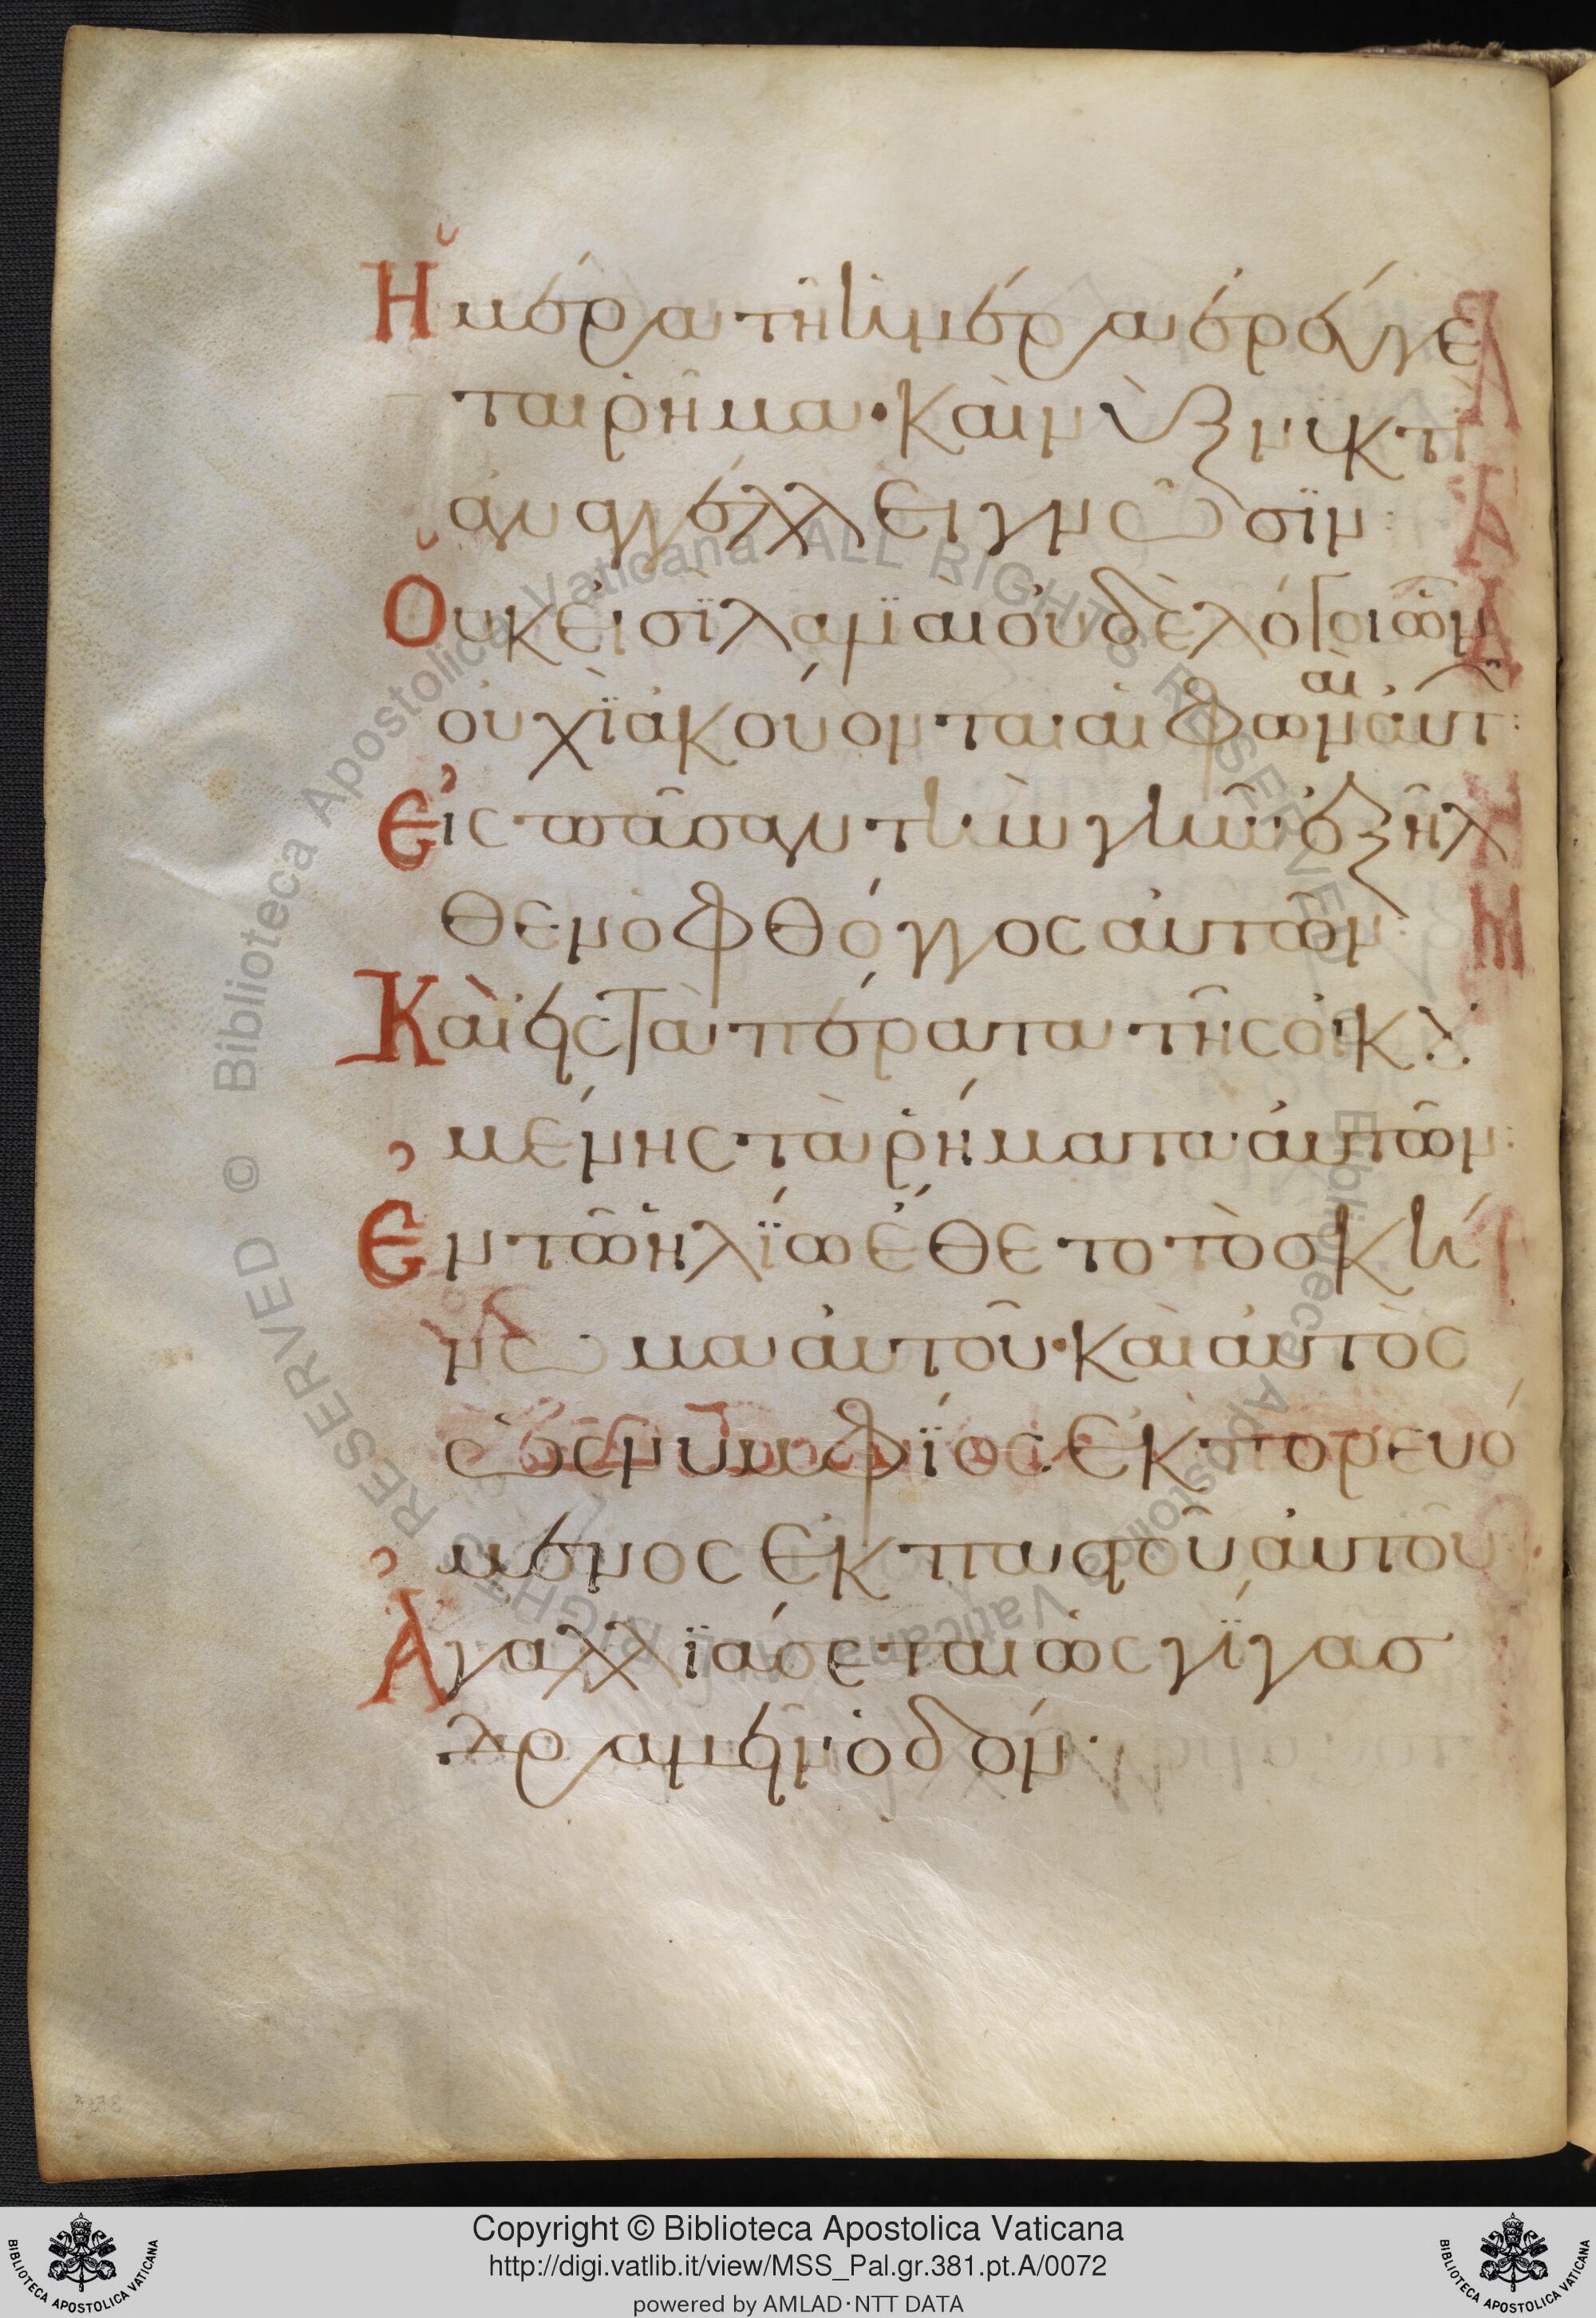 Ἡμέρα τῆ ἡμέρα ἐρεύγε
ται ῥῆμα· καὶ νὺξ νυκτὶ
ἀναγγέλλει γνῶσϊν:
Οὐκ εἰσῒ λαλϊαὶ οὐδὲ λόγοι ὧν
οὐχῒ ἀκούονται αἱ φωναὶ αὐτῶν:
Εἰς πᾶσαν τὴν γῆν ἐξῆλ
θεν ὁ φθόγγος αὐτῶν:
Καὶ εἰς τὰ πέρατα τῆς οἰκου
μένης τὰ ῥήματα αὐτῶν:
Ἐν τῶ ἡλίω ἔθετο τὸ σκή
νωμα αὐτοῦ· καὶ αὐτὸς
ὡς νυμφίος ἐκπορευό
μενος ἐκ παστοῦ αὐτοῦ:
Ἀγαλλϊάσεται ὡς γίγας
δραμεῖν ὁδόν·
Biblioteca Apostolica Vaticana ALL RIGHTS RESERVED © Biblioteca Apostolica Vaticana ALL RIGHTS RESERVED ©
Copyright © Biblioteca Apostolica Vaticana
http://digi.vatlib.it/view/MSS_Pal.gr.381.pt.A/0072
powered by AMLAD·NTT DATA
BIBLIOTECA APOSTOLICA VATICANA
BIBLIOTECA APOSTOLICA VATICANA